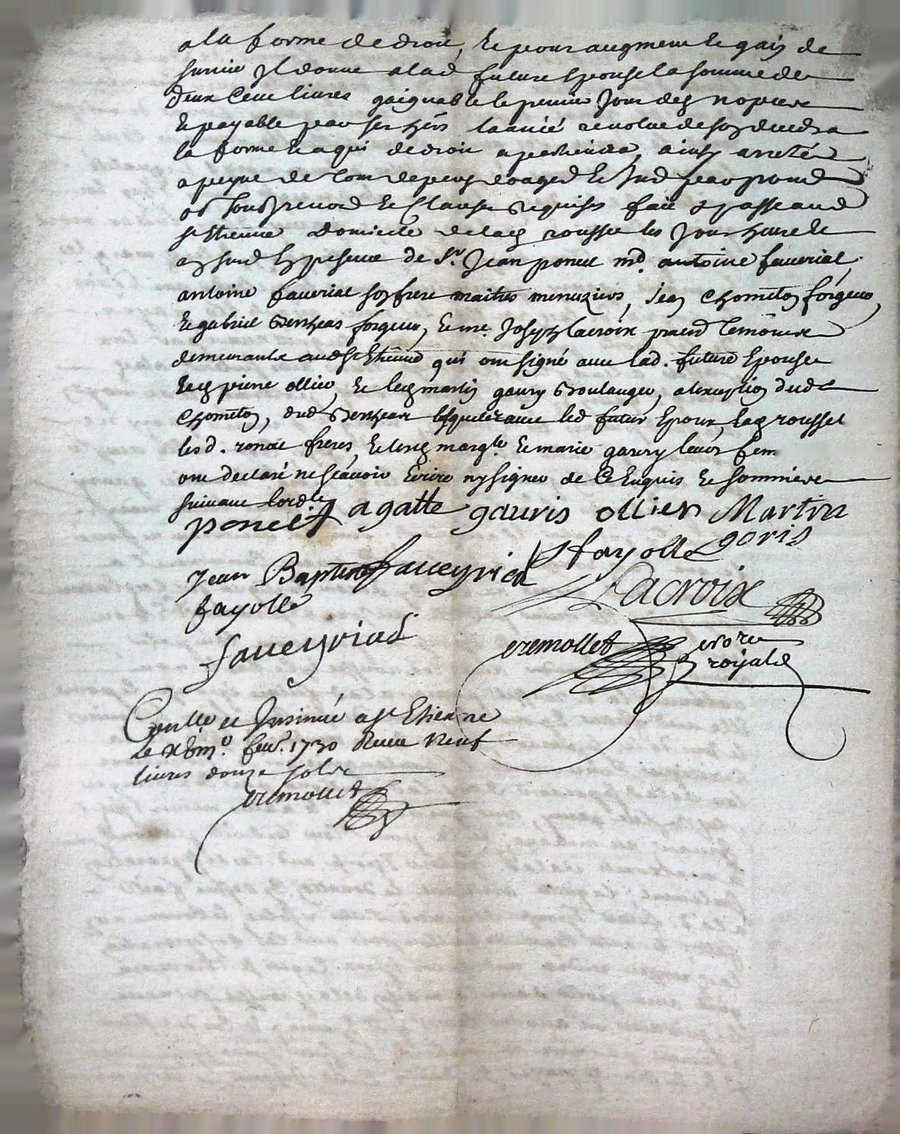 a la forme de droit, et pour augment et gain de
survie il donne a lad. future epouse la somme de
deux cent livres gaignable le premier jour des nopces
et payable par ses hers lannée revolue de son deced a
la forme et a qui de droit apartiendra, ainsy arreté a
a peyne de tous depens domages et
et clauses requises fait et passé aud
St Etienne domicile de lad rousset les jour et an
en presence de Sr. Jean poncet md. antoine faveriat
antoine faveriat son frere maitres menuziers, Jean Chometon forgeur,
et gabriel forgeur, et me. Joseph Lacroix temoins
demeurants aud St Etienne qui ont signé avec lad. future epouse
pierre ollier et martin gaury boulanger, a lexception dud
Chometon, dud lesquels avec led futur epoux, lad rousset
les d. freres, et marg.te et marie gaury leurs fem
ont declaré ne scavoir ecrire ny signer de ce enquis et sommés
suivant lord.
poncet agatte gauris ollier Martin
goris
fayolle
Jean Baptiste faveyriat
Lacroix
fayolle
faveyriat
cremollet
royal
Conllé et Insinué a St Etienne
le fev. 1730 Receu Neuf
livres douze sols
cremollet